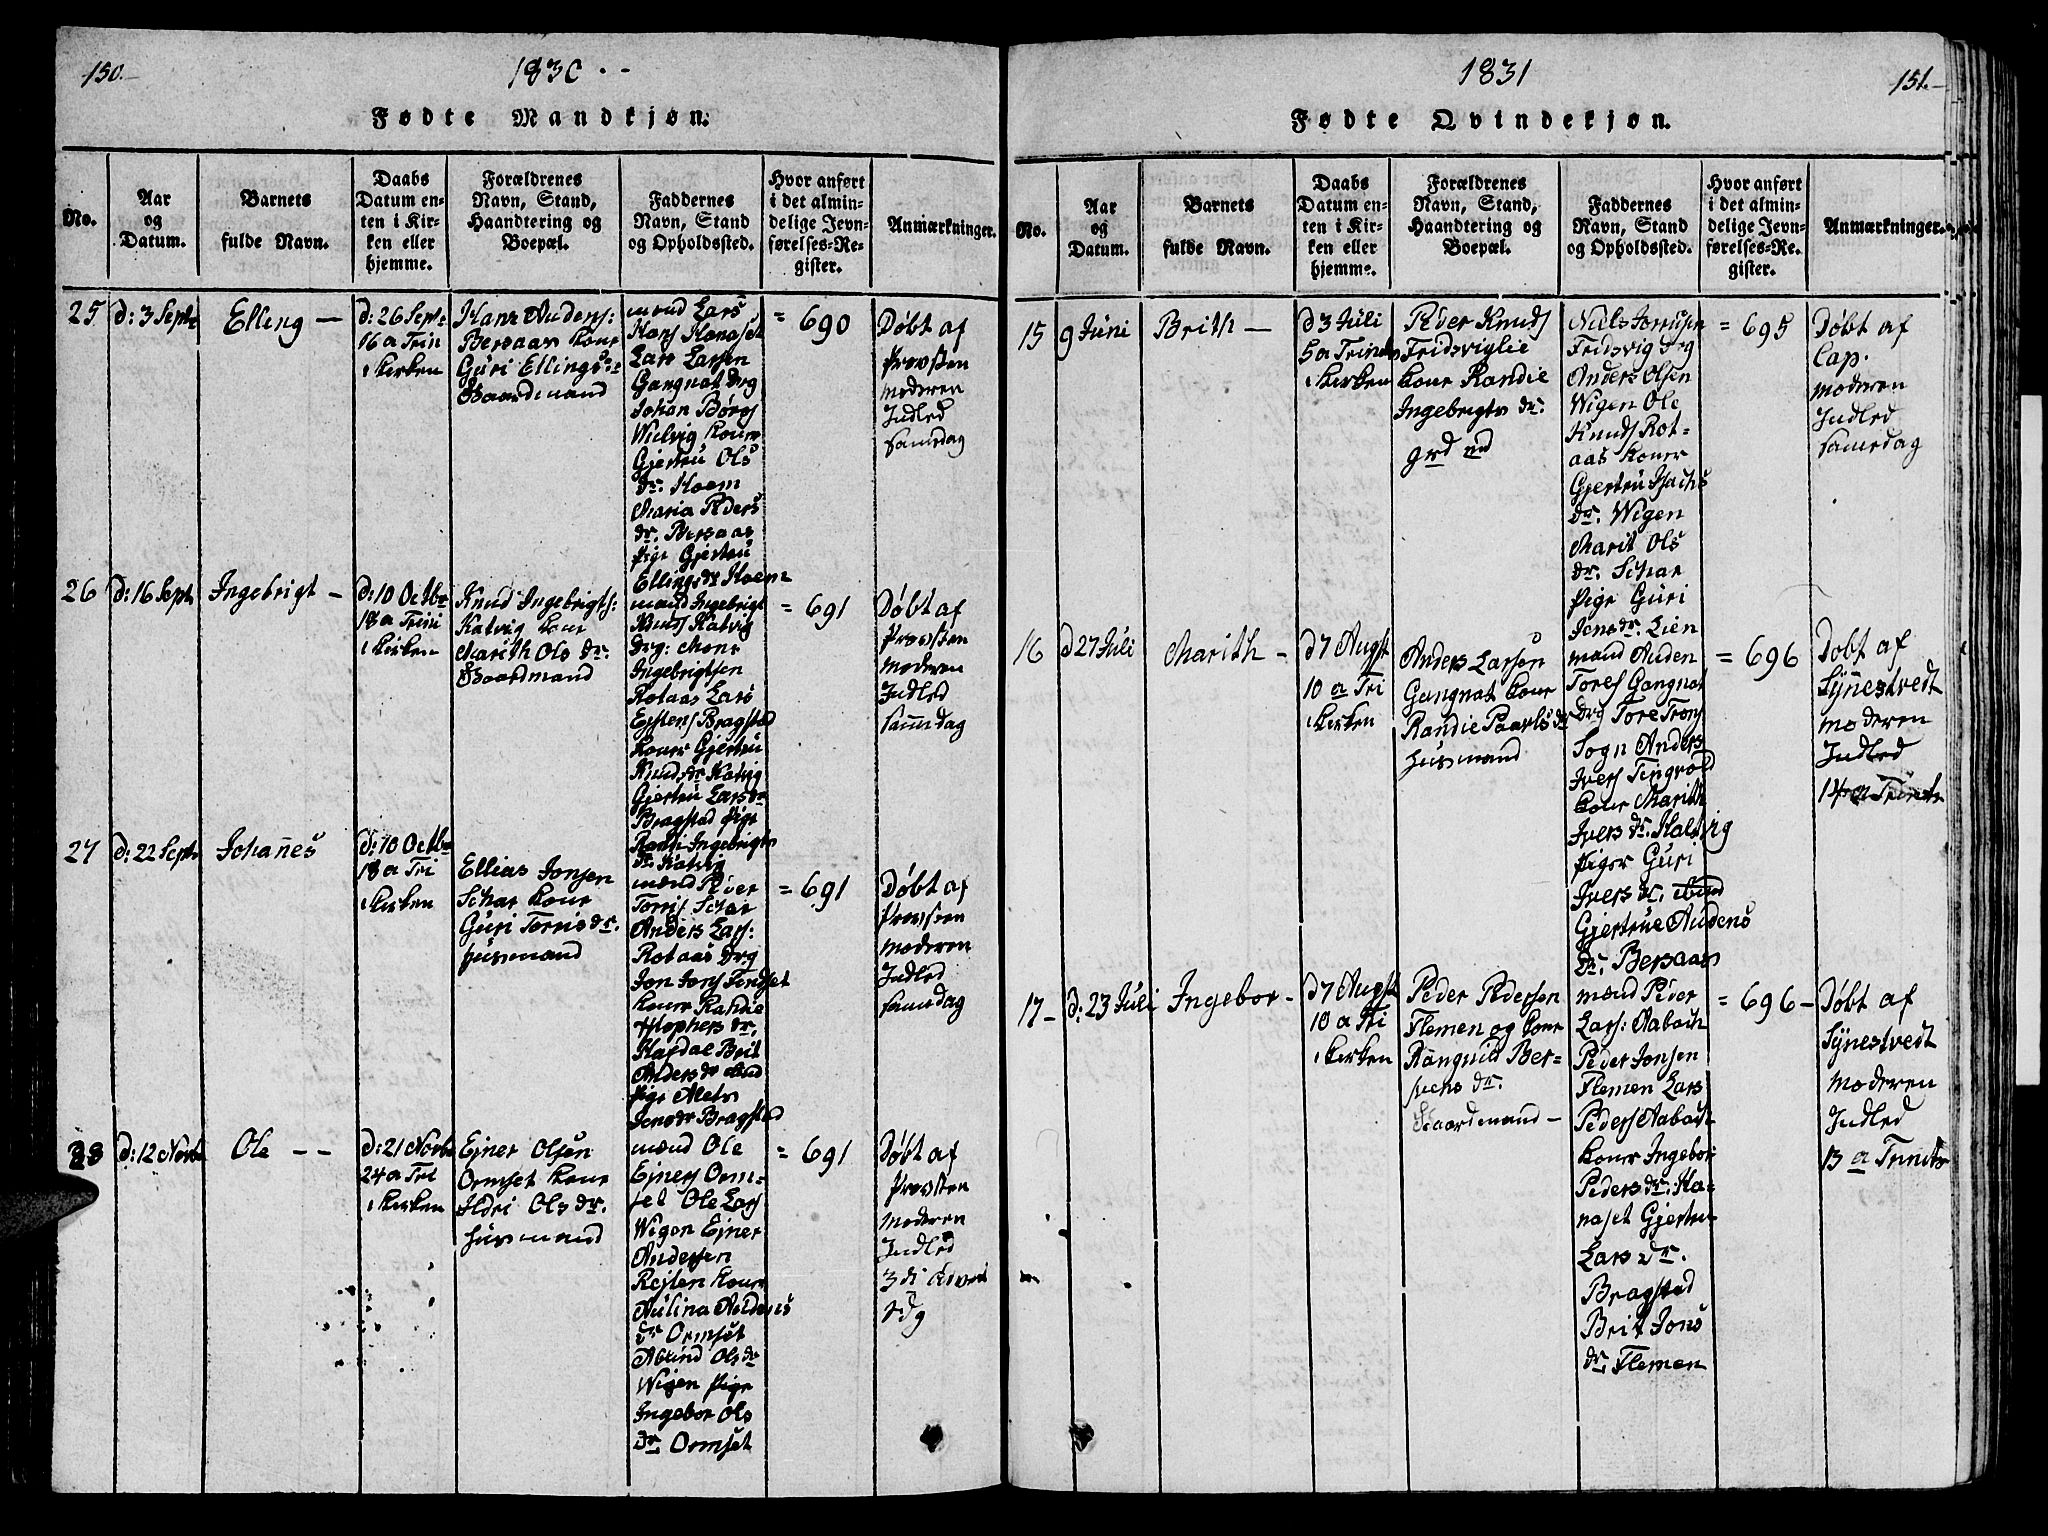 150.
1830
Fødte Mandkjøn.
No.
Aar
og
Datum.
Barnets
fulde Navn.
Daabs
Datum en-
ten i Kir-
ken eller
hjemme.
Forældrenes
Navn, Stand,
Haandtering og
Boepæl.
Faddernes
Navn, Stand
og Opholdssted.
Hvor anført
i det almin-
delige Jevn-
førelses-Re-
gister.
Anmærkninger.
25
d: 3 Septr
Elling —
d: 26 Sept
16 a Trin
i Kirken
Hans Audens:
Bersaas Kone
Guri Ellingsdr
Gaardmand
mænd Lars
Hans Hanaset
Lars Larsen
Gangnat drg
Johan Børgs
Wielvig Koner
Gjertru Ols
dr. Hoem
Maria Peders
dr. Bersaas
Pige Gjertru
Ellingsdr Hoem
= 690
Døbt af
Provsten
moderen
Indled
samedag
26
d: 16 Sept
Ingebrigt —
d: 10 Octbr
18 a Trin
i Kirken
Knud Ingebrigts:
Katvig Kone
Marith Ols dr.
Gaardmand
mænd Ingebrigt
Knuds Katvig
drg: Mons
Ingebrigtsen
Rotaas Lars
Estens Bragstad
Koner Gjertru
Knudsdr Katvig
Gjertru Larsdr
Bragstad Pige
Randi Ingebrigts
dr. Katvig
= 691
Døbt af
Provsten
moderen
Indled
samedag
27
d: 22 Sept
Johañes
d: 10 Octbr
18 a Tri
i Kirken
Ellias Jonsen
Schar Kone
Guri Torrisdr.
Husmand
mænd Peder
Torris Schar
Anders Lars:
Rotaas drg
Jon Jons Tendset
Koner Randie
dr.
Hasdal Brit
Anders dr
Pige Alets
Jensdr Bragstad
= 691
Døbt af
Provsten
moderen
Indled
samedag
28
d: 12 Novbr
Ole — —
d: 21 Novbr
24 a Tri
i Kirken
Ejner Olsen
Ormset Kone
Ildri Ols dr.
Husmand
mænd Ole
Ejners Orm-
set Ole Lars
Wigen Ejner
Andersen
Rejten Koner
Audens
dr Ormset
Olsdr
Wigen Pige
Ingebor Ols
dr Ormset
= 691
Døbt af
Provsten
moderen
Indled
3 di
1831
151.
Fødte Qvindekjøn.
No.
Aar
og
Datum.
Barnets
fulde Navn.
Daabs
Datum en-
ten i Kir-
ken eller
hjemme.
Forældrenes
Navn, Stand,
Haandtering og
Boepæl.
Faddernes
Navn, Stand
og Opholdssted.
Hvor anført
i det almin-
delige Jevn-
førelses-Re-
gister.
Anmærkninger.
15
9 Juni
Brith —
d 3 Juli
5 a Trinits
i Kirken
Peder Knuds
Fridsviglie
Kone Randie
Ingebrigts dr.
Niels
Fridsvig drg
Anders Olsen
Wigen Ole
Knuds Rot-
aas Koner
Gjertru Isachs
dr. Wigen
Marit Ols
dr. Schar
Pige Guri
Jens dr. Lien
= 695
Døbt af
Cap.
moderen
Indled
samedag
16
d 27 Juli
Marith —
d 7 Augst
10 a Tri
i Kirken
Anders Larsen
Gangnat Kone
Randie Paarlsdr
Husmand
mænd Auden
Tores Gangnat
drg Tore Trons
Sogn Anders
Ivers Tingvold
Koner Marith
Ivers dr. Halsvig
Piger Guri
Ivers dr.
Gjertrue Audens
dr. Bersaas
= 696
Døbt af
Synestvedt
moderen
Indled
14 a Trinits
17 —
d: 23 Juli
Ingebor —
d 7 Augst
10 a Tri
i Kirken
Peder Pedersen
Flemen og Kone
Ranguild Ber-
sdr.
Gaardmand —
mænd Peder
Lars: Aabach
Peder Jonsen
Flemen Lars
Peders Aabach
Koner Ingebor
Peders dr. Ha-
naset Gjertru
Lars dr.
Bragstad
Brit Jons
dr. Flemen
= 696 —
Døbt af
Synestvedt
moderen
Indled
13 a Trinits